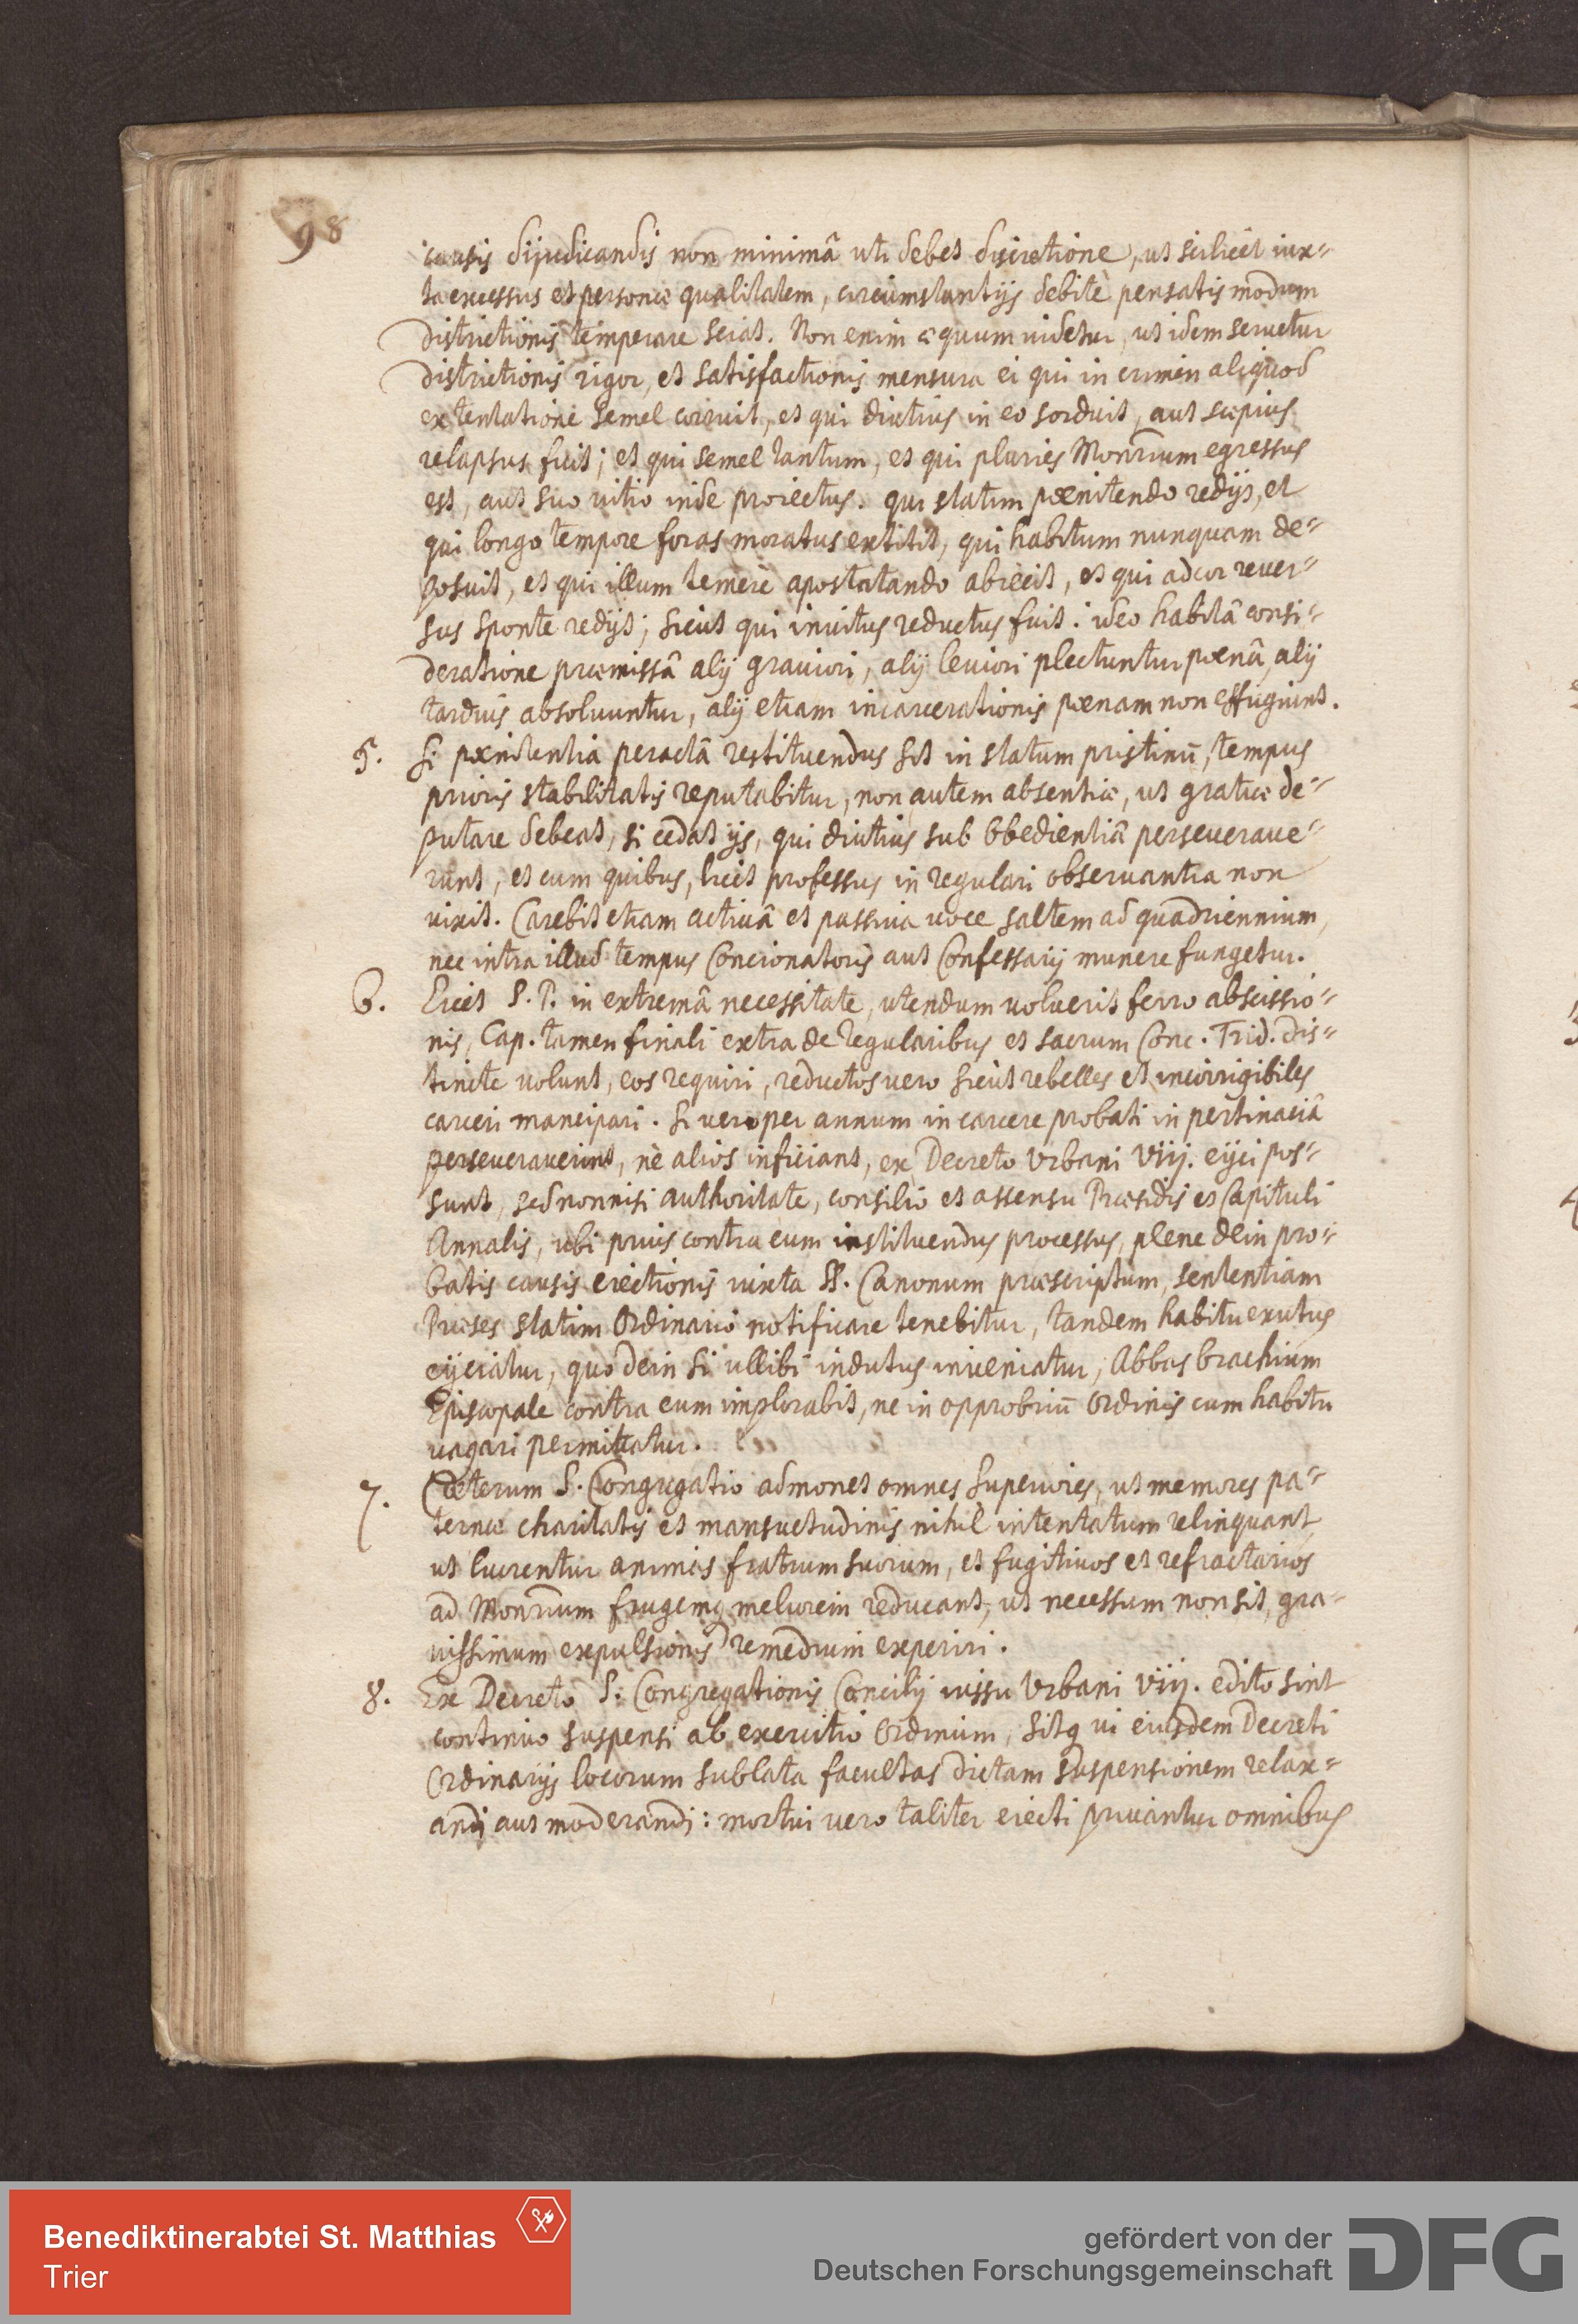 98
causis dijudicandis non minimâ uti debet discretione, ut scilicet iux=
ta excessus et personæ qualitatem, circumstantijs debitè pensatis modum
districtionis temperare sciat. Non enim æquum uidetur, ut idem seruetur
districtionis rigor, et satisfactionis mensura ei qui in crimen aliquod
ex tentatione semel corruit, et qui diutius in eo sorduit, aut sæpius
relapsus fuit; et qui semel tantum, et qui pluries Monrium egressus
est, aut suo uitio inde proiectus. qui statim pœnitendo redijt, et
qui longo tempore foras moratus extitit, qui habitum nunquam de=
posuit, et qui illum temerè apostatando abiecit, et qui ad cor reuer=
sus sponte redijt; sicut qui inuitus reductus fuit: ideo habitâ consi=
deratione præmissâ alij grauiori, alij leuiori plectuntur pœnâ, alij
tardius absoluuntur, alij etiam incarcerationis pœnam non effugiunt.
5. Si pœnitentia peractâ restituendus sit in statum pristinū, tempus
prioris stabilitatis reputabitur, non autem absentiæ, ut gratiæ de=
putare debeat, si cedat ijs, qui diutius sub Obedientiâ perseueraue=
runt, et cum quibus, licet professus in regulari obseruantia non
uixit. Carebit etiam actiuâ et passiua uoce saltem ad quadriennium,
nec intra illud tempus Concionatoris aut Confessarij munere fungetur.
6. Licet S. P. in extremâ necessitate, utendum uoluerit ferro abscissio=
nis, Cap. tamen finali extra de regularibus et sacrum Conc. Trid. dis=
tincte uolunt, eos requiri, reductos uero sicut rebelles et incorrigibiles
carceri mancipari. Si uero per annum in carcere probati in pertinaciâ
perseuerauerint, nè alios inficiant, ex Decreto Vrbani Viij. eijci pos=
sunt, sed nonnisi authoritate, consilio et assensu Præsidis et Capituli
Annalis, ubi prius contra eum instituendus processus, plene dein pro=
batis causis eiectionis iuxta SS. Canonum præscriptum, sententiam
Præses statim Ordinario notificare tenebitur, tandem habitu exutus
eijciatur, quo dein si ullibi indutus inueniatur, Abbas brachium
Episcopale contra eum implorabit, ne in opprobriū Ordinis cum habitu
uagari permittatur.
7. Cæterum S. Congregatio admonet omnes Superiores, ut memores pa=
ternæ charitatis et mansuetudinis nihil intentatum relinquant
ut lucrentur animas fratrum suorum, et fugitiuos et refractarios
ad Monrium frugemq meliorem reducant, ut necessum non sit, gra=
uissimum expulsionis remedium experiri.
8. Ex Decreto S. Congregationis Concilij iussu Vrbani Viij. edito sint
continuo suspensi ab exercitio Ordinum, sitq ui eiusdem Decreti
Ordinarijs locorum sublata facultas dictam suspensionem relax=
andi aut moderandi: mortui uero taliter eiecti priuantur omnibus
Benediktinerabtei St. Matthias
Trier
gefördert von der
Deutschen Forschungsgemeinschaft
DFG